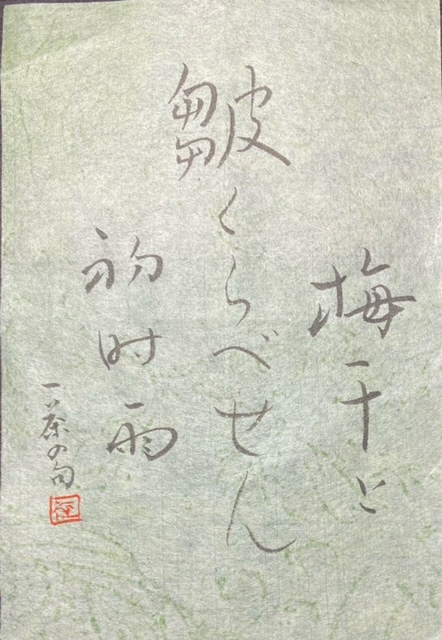 梅干と
皺くらべせん
初時雨
一茶の句